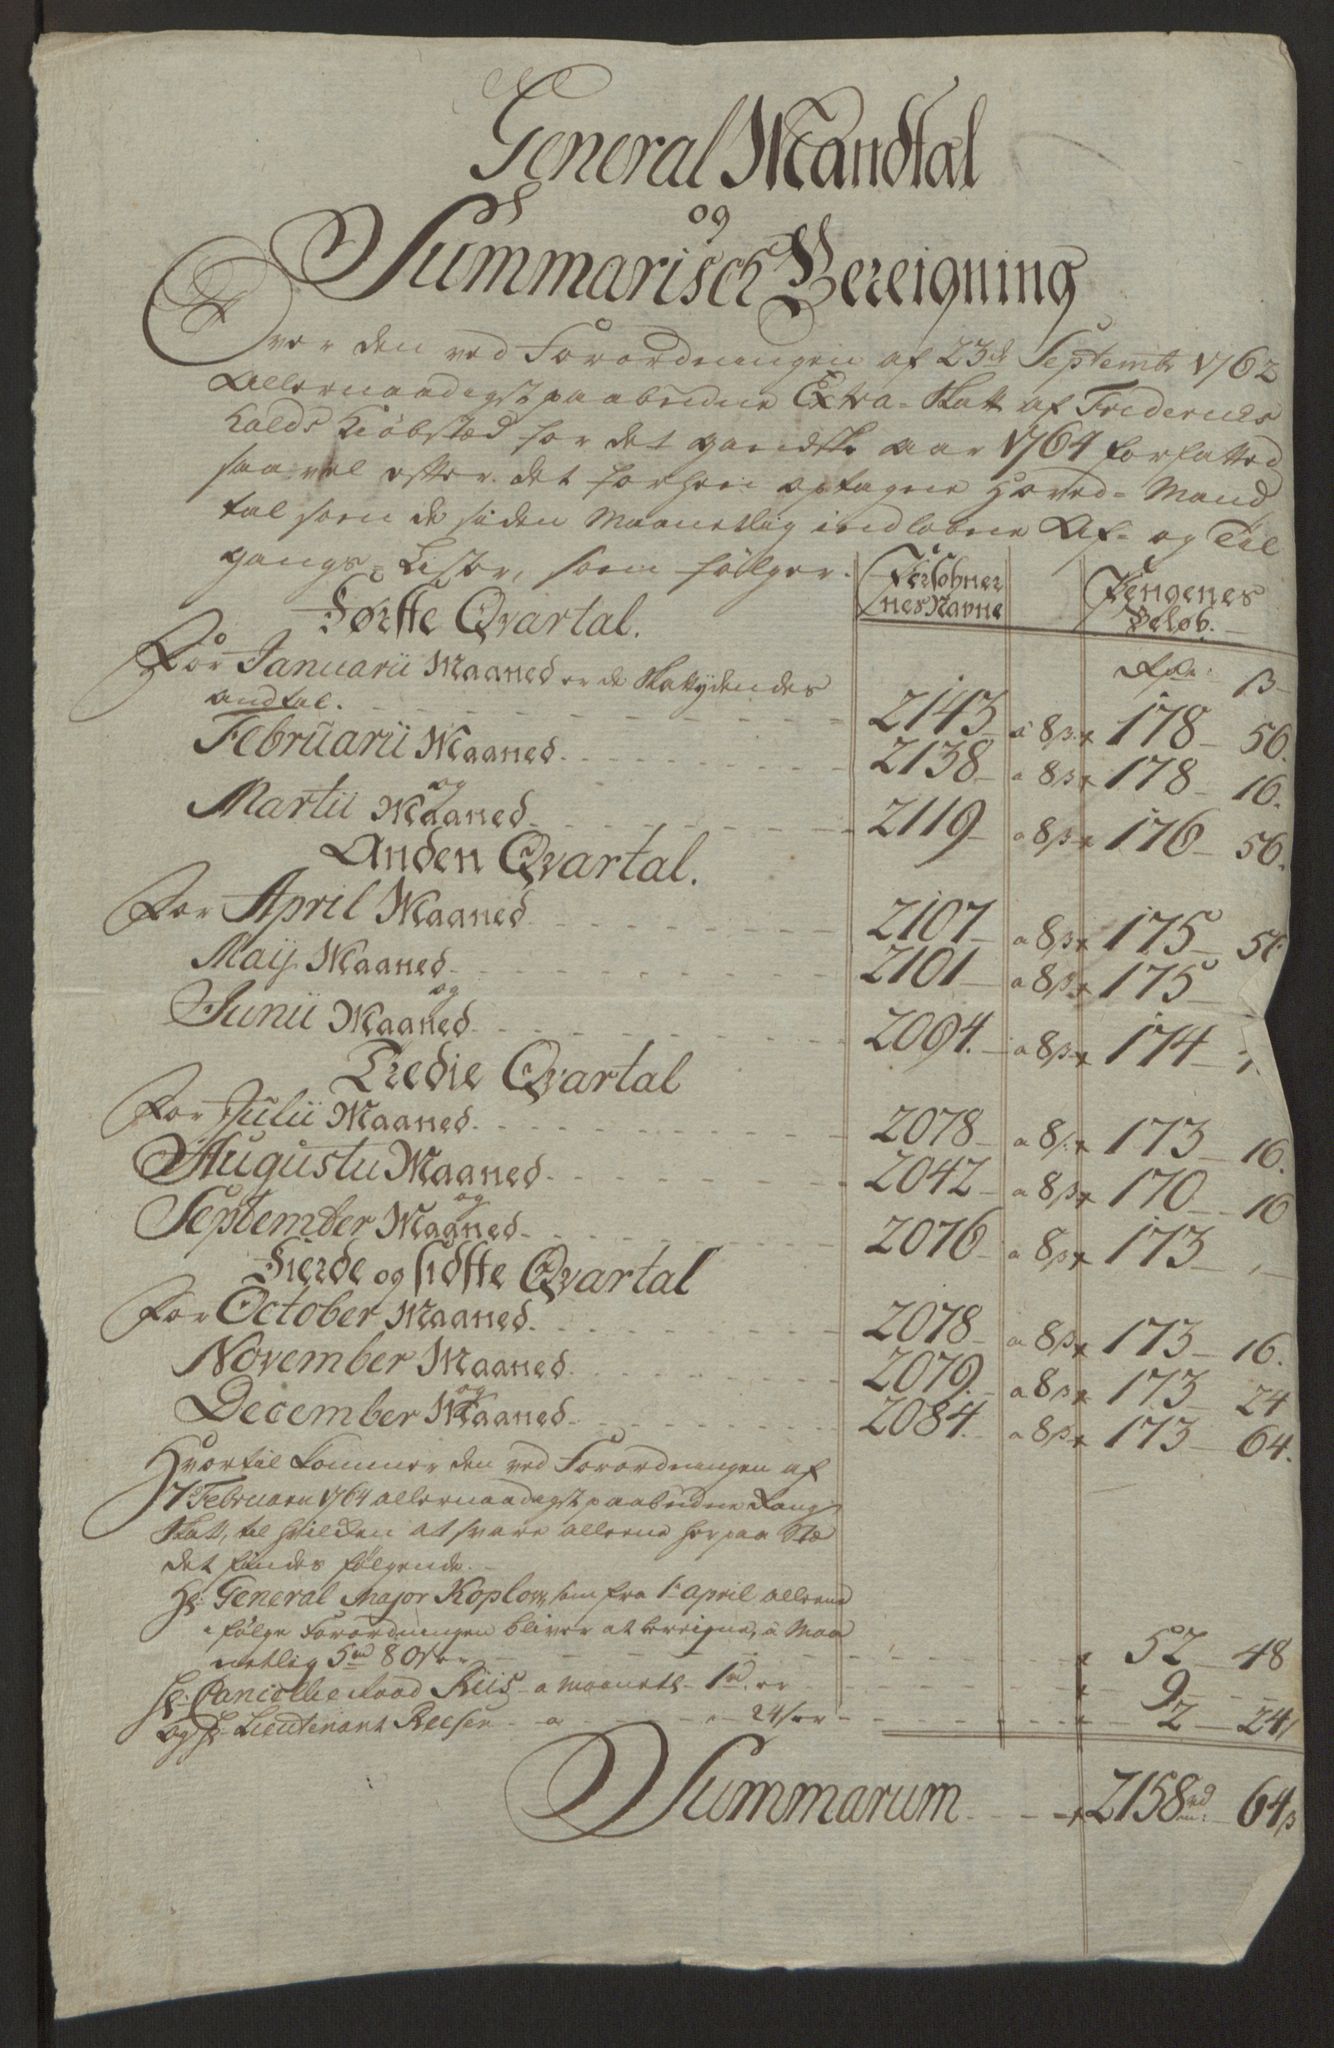 General Mandtal
og
Summarisch Bereigning
Over den ved Forordningen af 23de Septembr 1762
Allernaadigst paabudne Extra-Skatt af Friderichs
halds Kiøbstæd for det gandske aar 1764 forfatted
saa vel efter det forhen optagne Hoved-Mand
tal som de siden Maanetlig indløbne Af- og Til
gangs-Lister, som følger.
Persohner
nes Navne
Pengenes
Beløb.
Første Qvartal.
Rdr: β
For Januarii Maaned er de Skattydendes
andtal. 2143 a 8β 178 56.
Februarii Maaned. 2138 a 8β 178 16.
og
Martii Maaned 2119 a 8β 176 56.
Anden Qvartal.
For April Maaned 2107 a 8β 175 56
Maij Maaned 2101 a 8β 175
og
Junii Maaned 2094. a 8β 174
Tredie Qvartal
For Julii Maaned. 2078 a 8β 173 16.
Augustii Maaned 2042 a 8β 170 16
og
September Maaned 2076 a 8β 173 „
Fierde og sidste Qvartal
For October Maaned. 2078 a 8β 173 16.
November Maaned 2079. a 8β 173 24
og
December Maaned 2084. a 8β 173 64.
Hvortil kommer den ved Forordningen af
7de Februarii 1764 allernaadigst paabudne Rang
Skatt, til hvilken at svare alleene her paa Stæ
det findes følgende.
Hr General Major Koplow, som fra 1te April alleene
i følge Forordningen bliver at bereigne, a Maa
netlig 5rd 80s er 52 48
Hr: Cancellie Raad Riis a Maanetl. 1rd. er 9
og Hr Lieutenant Reesen a 24s er 2 24
Summarum 2158rd 64β